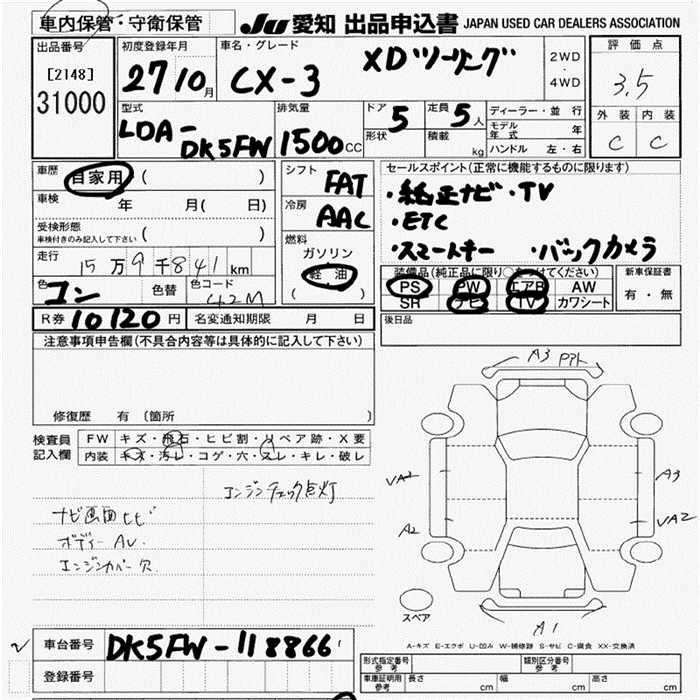 車内保管・守衛保管
JU 愛知 出品申込書 JAPAN USED CAR DEALERS ASSOCIATION
出品番号
[2148]
31000
初度登録年月
27 10月
車名・グレード
CX-3 XDツーリング
2WD
・
4WD
評価点
3.5
外装 内装
C C
型式
LDA-
DK5FW
排気量
1500cc
ドア 5
形状
定員 5人
積載 kg
ディーラー・並行
モデル年式 年
ハンドル 左・右
車歴
自家用 ( )
車検 年 月( 日)
受検形態
車検付きのみ記入して下さい ( )
走行
15万9千841km
色 コン 色替 色コード 42M
シフト
FAT
冷房
AAC
燃料
ガソリン
軽油
( )
セールスポイント(正常に機能するものに限ります)
・純正ナビ・TV
・ETC
・スマートキー ・バックカメラ
装備品(純正品に限り○をつけてください)
PS PW エアB AW
SR ナビ TV カワシート
新車保証書
有・無
R券 10120円 名変通知期限 月 日
後日品
注意事項申告欄(不具合内容等は具体的に記入して下さい)
修復歴 有 〔箇所 〕
検査員
記入欄
FW キズ・飛石・ヒビ割・リペア跡・X要
内装 キズ・汚レ・コゲ・穴・スレ・キレ・破レ
エンジンチェック点灯
ナビ画面ヒビ
ボディーAU.
エンジンカバー欠
A3
A3
A2
VA2
A1
スペア
A-キズ E-エクボ U-凹み W-補修跡 S-サビ C-腐食 XX-交換済
車台番号 DK5FW-118866
登録番号
形式指定番号
参考
類別区分番号
参考
車庫証明用
参考
長さ cm 幅 cm 高さ cm